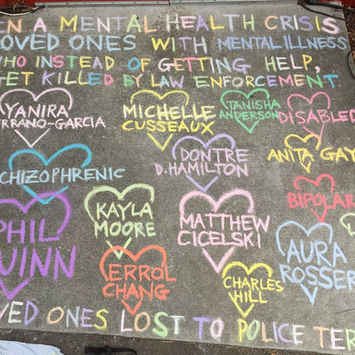 EN A MENTAL HEALTH CRISIS
LOVED ONES WITH MENTAL ILLNESS
WHO INSTEAD OF GETTING HELP,
GET KILLED BY LAW ENFORCEMENT.
YANIRA
RRANO-GARCIA
MICHELLE
CUSSEAUX
TANISHA
ANDERSON
DISABLED
CHIZOPHRENIC
DONTRE
D. HAMILTON
ANITA GAY
PHIL
QUINN
KAYLA
MOORE
MATTHEW
CICELSKI
BIPOLAR
ERROL
CHANG
CHARLES
HILL
AURA
ROSSER
VED ONES LOST TO POLICE TER